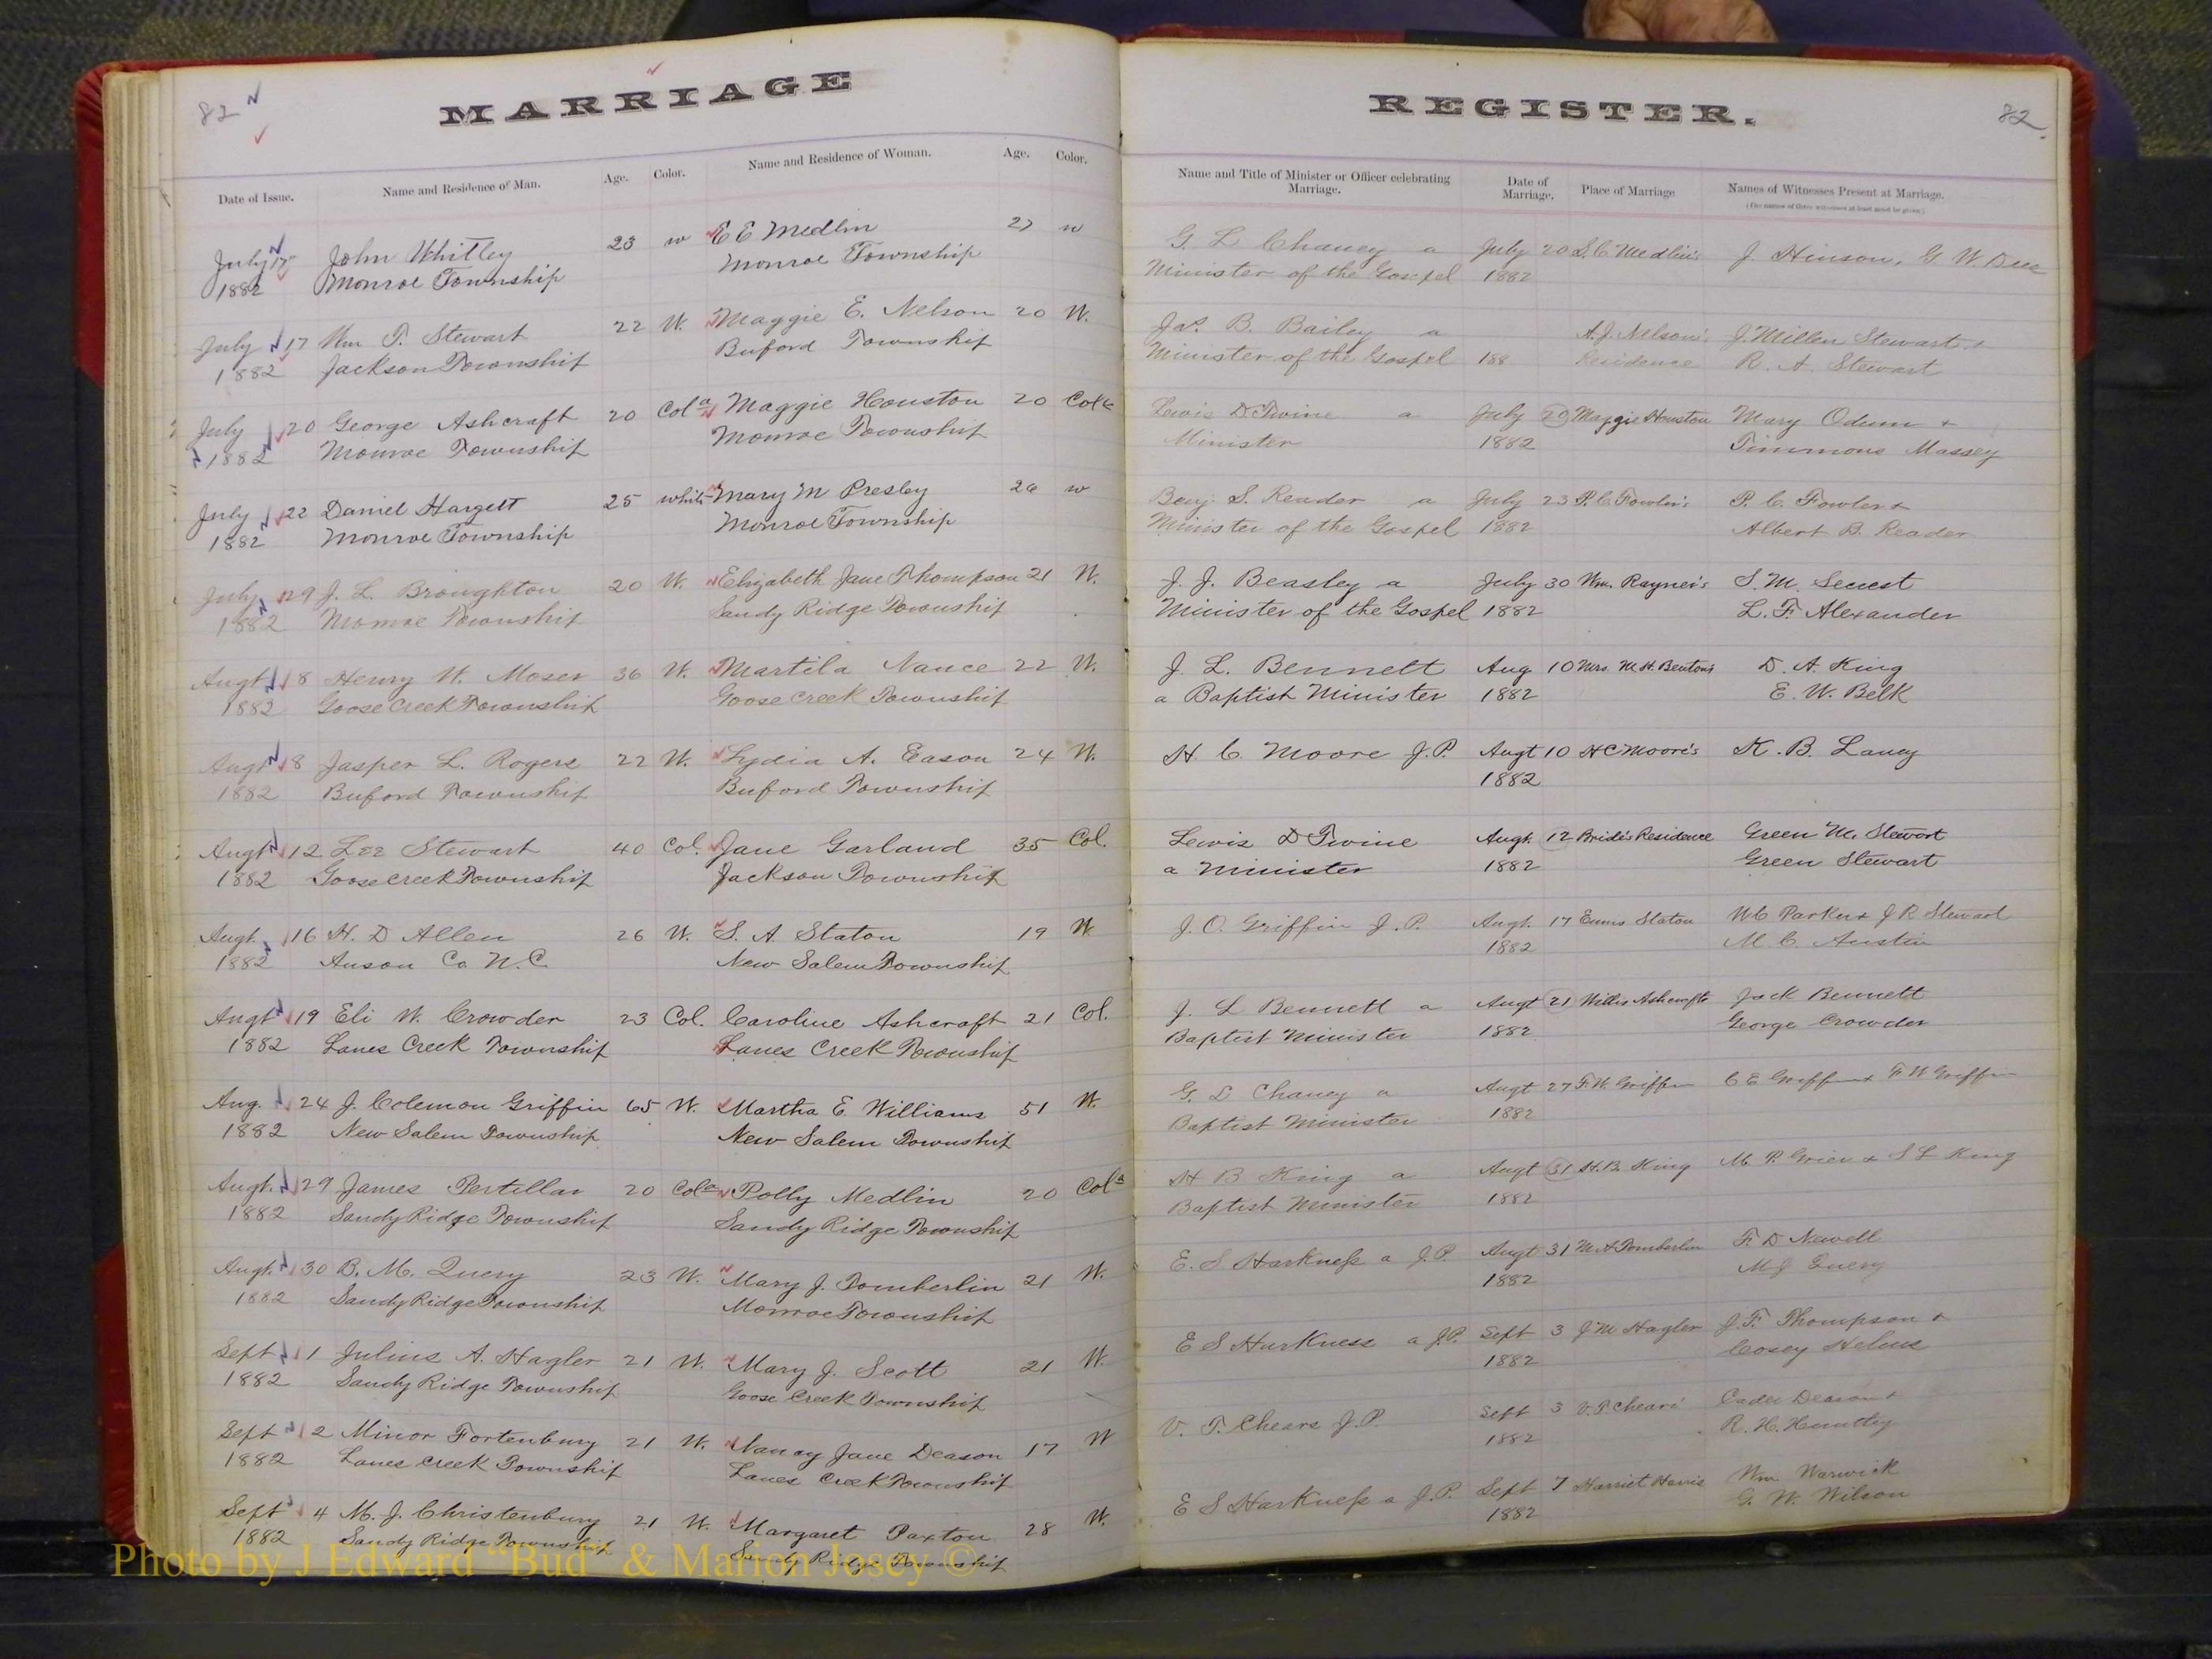 82
MARRIAGE
Date of Issue. Name and Residence of Man. Age. Color. Name and Residence of Woman. Age. Color.
July 17 John Whitley 23 w E E Medlin 27 w
1882 Monroe Township Monroe Township
July 17 Wm T. Stewart 22 W. Maggie E. Nelson 20 W.
1882 Jackson Township Buford Township
July 20 George Ashcraft 20 Cold Maggie Houston 20 Cold
1882 Monroe Township Monroe Township
July 22 Daniel Hargett 25 white Mary M Presley 26 w
1882 Monroe Township Monroe Township
July 29 J. L. Broughton 20 W. Elizabeth Jane Thompson 21 W.
1882 Monroe Township Sandy Ridge Township
Augt 8 Henry W. Moser 36 W. Martila Nance 22 W.
1882 Goose Creek Township Goose Creek Township
Augt 8 Jasper L. Rogers 22 W. Lydia A. Eason 24 W.
1882 Buford Township Buford Township
Augt 12 Lee Stewart 40 Col. Jane Garland 35 Col.
1882 Goose Creek Township Jackson Township
Augt. 16 H. D Allen 26 W. S. A Staton 19 W
1882 Anson Co N.C. New Salem Township
Augt 19 Eli W. Crowder 23 Col. Caroline Ashcraft 21 Col.
1882 Lanes Creek Township Lanes Creek Township
Aug. 24 J. Coleman Griffin 65 W. Martha E. Williams 51 W.
1882 New Salem Township New Salem Township
Augt. 29 James Pertillar 20 Cold Polly Medlin 20 Cold
1882 Sandy Ridge Township Sandy Ridge Township
Augt. 30 B. M. Query 23 W. Mary J. Tomberlin 21 W.
1882 Sandy Ridge Township Monroe Township
Sept 1 Julius A. Hagler 21 W. Mary J. Scott 21 W.
1882 Sandy Ridge Township Goose Creek Township
Sept 2 Minor Fortenbury 21 W. Nancy Jane Deason 17 W
1882 Lanes Creek Township Lanes Creek Township
Sept 4 M. J. Christenbury 21 W. Margaret Paxton 28 W.
1882 Sandy Ridge Township Sandy Ridge Township
REGISTER.
82
Name and Title of Minister or Officer celebrating Marriage. Date of Marriage. Place of Marriage Names of Witnesses Present at Marriage.
G. L Chaney a July 20 S. C Medlin's J. Hinson, G. W. Dees
Minister of the Gospel 1882
Jas. B. Bailey a A. J. Nelson's J. Millen Stewart +
Minister of the Gospel 188 Residence R. A. Stewart
Lewis D Twine a July 20 Maggie Houston Mary Odum +
Minister 1882 Timmons Massey
Benj. S. Reader a July 23 P. C. Fowler's P. C. Fowler +
Minister of the Gospel 1882 Albert B. Reader
J. J. Beasley a July 30 Wm. Rayner's S. M. Secrest
Minister of the Gospel 1882 L. F. Alexander
J. L. Bennett Aug 10 Mrs. M. H. Benton's D. A. King
a Baptist Minister 1882 E. W. Belk
H. C. Moore J.P. Augt 10 H C Moore's K. B. Laney
1882
Lewis D Twine Augt. 12 Bride's Residence Green M. Stewart
a Minister 1882 Green Stewart
J. O. Griffin J.P. Augt. 17 Staton W C Parker + J R Stewart
1882 M. C. Austin
J. L Bennett a Augt 21 Willis Ashcraft's Jack Bennett
Baptist Minister 1882 George Crowder
G. L Chaney a Augt 27 F. W. Griffin C E Griffin + F. W Griffin
Baptist Minister 1882
H B King a Augt 31 H. B. King M. P. Grier + S L King
Baptist Minister 1882
E. S Harkness a J.P. Augt 31 M. A Tomberlin F. D Newell
1882 M J Query
E S Harkness a J.P. Sept 3 J M Hagler J. F. Thompson +
1882 Cosey Helms
V. T. Chears J.P. Sept 3 V. T. Chears' Deason +
1882 R. H. Huntley
E S Harkness a J.P. Sept 7 Harriet Wm Warwick
1882 G. W. Wilson
Photo by J Edward “Bud” & Marion Josey ©